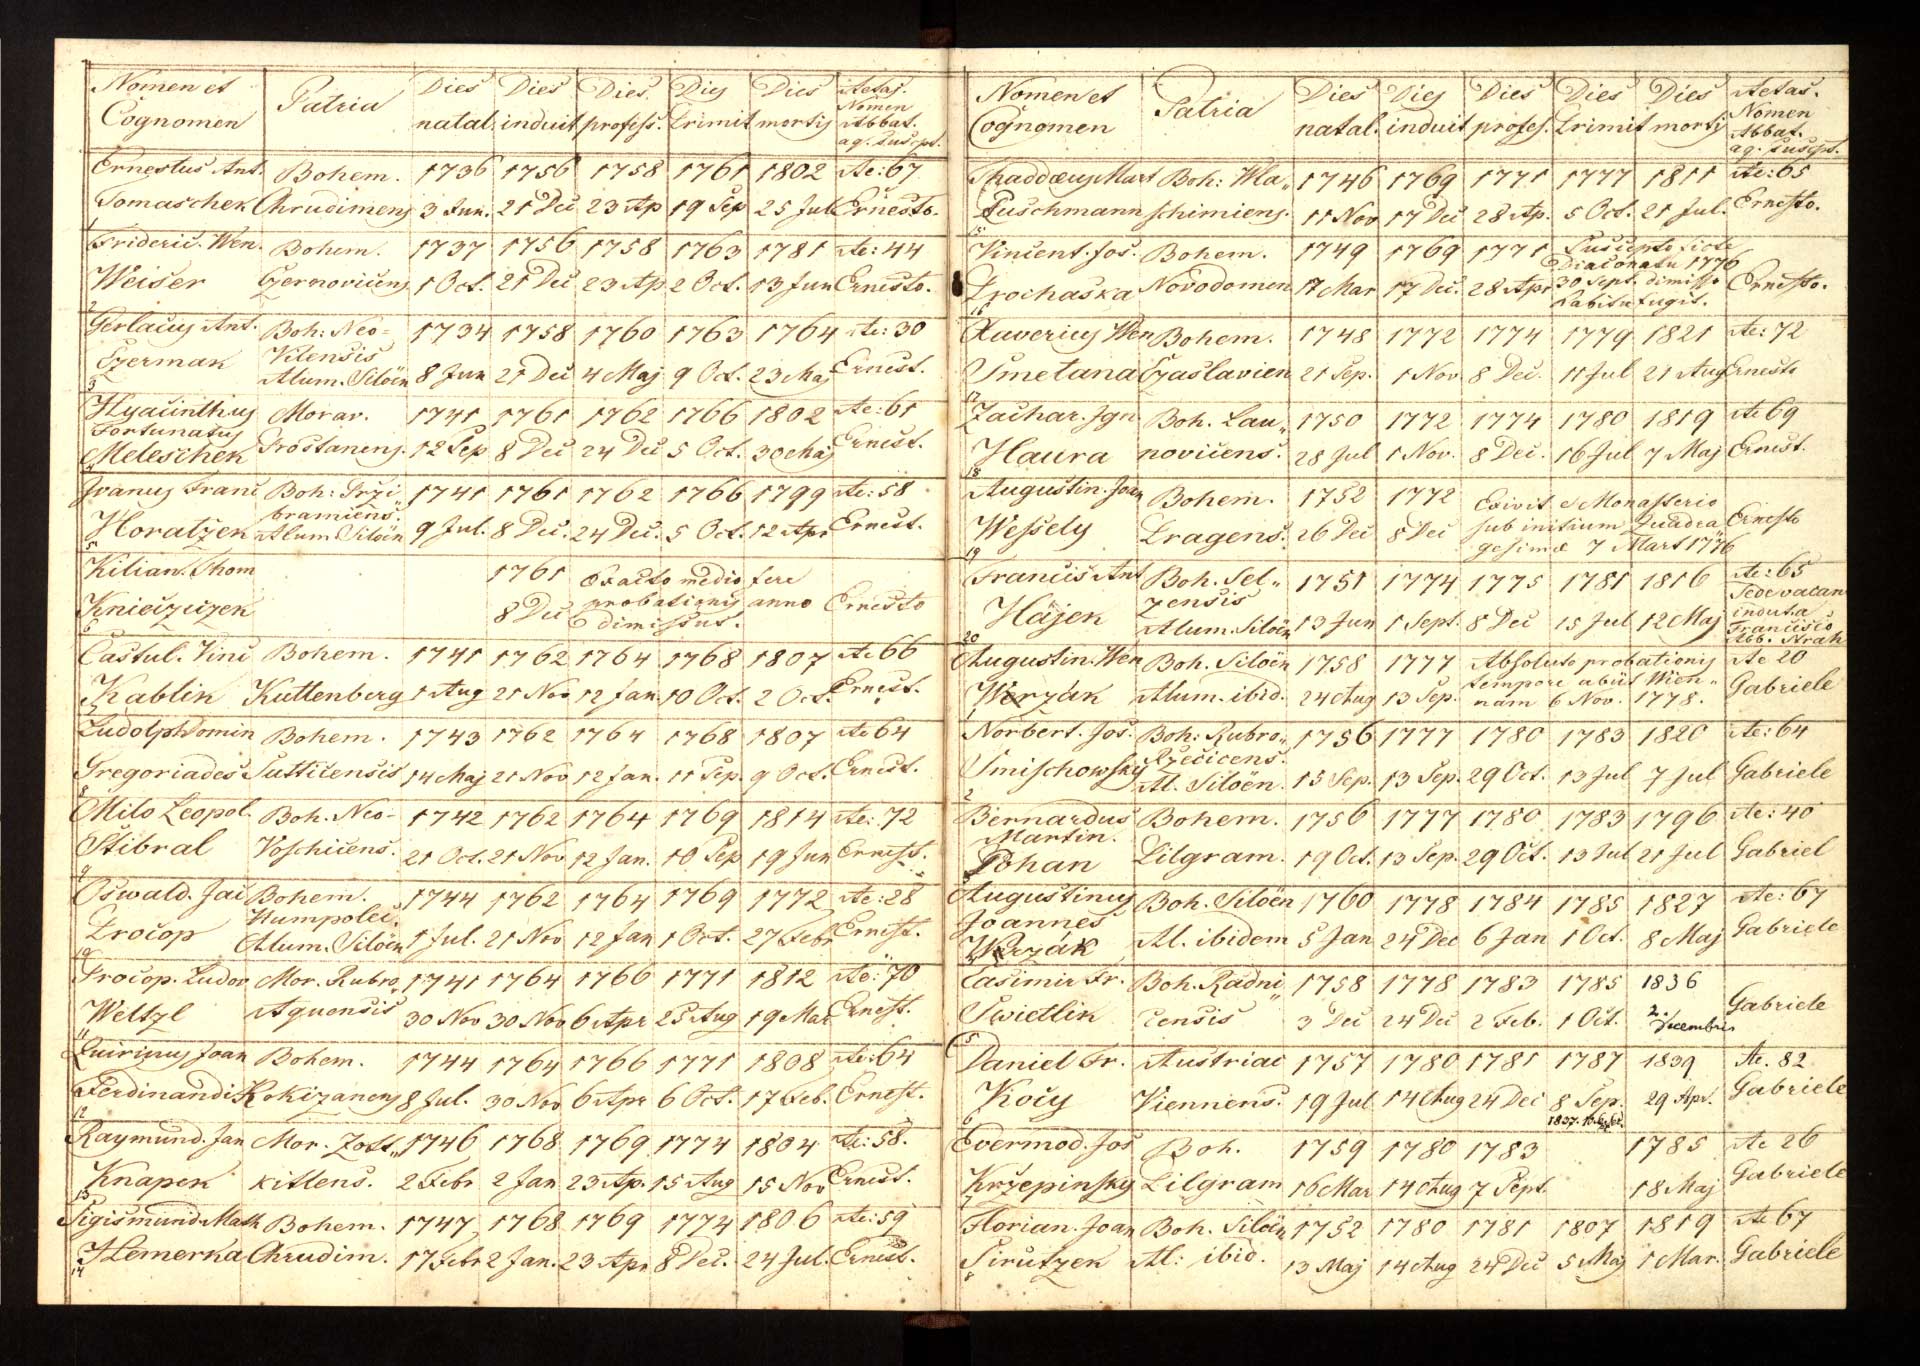 Nomen et Patria Dies Dies Dies Dies Dies Aetas.
Cognomen natal. induit profess. Primit mortis Nomen Abbat. ag. suscpt.
Ernestus Ant. Bohem. 1736 1756 1758 1761 1802 Ae: 67
Tomaschek Chrudimens 3 Jun. 21 Dec 23 Ap 19 Sep 25 Jul Ernesto.
1
Frideric. Wen. Bohem. 1737 1756 1758 1763 1781 Ae: 44
Weiser Czernovicens 1 Oct. 21 Dec 23 Ap 2 Oct. 13 Jun Ernesto.
2
Gerlacus Ant. Boh: Neo- 1734 1758 1760 1763 1764 Ae: 30
Czermak Vilensis Alum. Siloën 8 Jun 21 Dec 4 Maj 9 Oct. 23 Maj Ernest.
3
Hyacinthus Morav. 1741 1761 1762 1766 1802 Ae: 61
Fortunatus
Meleschek Prostanens. 12 Sep 8 Dec 24 Dec 5 Oct. 30 Maj Ernest.
Ivanus Franc Boh: Przi- 1741 1761 1762 1766 1799 Ae: 58
Horatzek bramiens. Alum Siloën 9 Jul. 8 Dec. 24 Dec. 5 Oct. 12 Apr Ernest.
5
Kilian. Thom 1761 Exacto medio fere
Knieczizek 8 Dec probationis anno dimissus. Ernesto
6
Castul. Vinc Bohem. 1741 1762 1764 1768 1807 Ae 66
Kablik Kuttenberg 1 Aug 21 Nov 12 Jan. 10 Oct. 2 Oct. Ernest.
7
Ludolph Domin Bohem. 1743 1762 1764 1768 1807 Ae 64
Gregoriades Sutticensis 14 Maj 21 Nov 12 Jan. 11 Sep. 9 Oct. Ernest.
8
Milo Leopol. Boh. Neo- 1742 1762 1764 1769 1814 Ae: 72
Stibral Voschicens. 21 Oct. 21 Nov 12 Jan. 10 Sep 19 Jun Ernest.
9
Oswald. Jac Bohem. 1744 1762 1764 1769 1772 Ae: 28
Procop Humpolec. Alum. Siloën 1 Jul. 21 Nov 12 Jan 1 Oct. 27 Febr Ernest.
10
Procop. Ludov Mor. Rubro 1741 1764 1766 1771 1812 Ae: 70
Weltzl Aquensis 30 Nov 30 Nov 6 Apr 25 Aug 19 Mar Ernest.
11
Quirinus Joan Bohem. 1744 1764 1766 1771 1808 Ae: 64
Ferdinandi Rokizanens 8 Jul. 30 Nov 6 Apr 6 Oct. 17 Feb. Ernest.
12
Raymund. Jan Mor. Zott„ 1746 1768 1769 1774 1804 Ae: 58.
Knapek kittens. 2 Febr 2 Jan 23 Ap. 15 Aug 15 Nov Ernest.
13
Sigismund. Math Bohem. 1747 1768 1769 1774 1806 Ae: 59
Klemerka Chrudim. 17 Febr 2 Jan. 23 Apr 8 Dec. 24 Jul. Ernest.
14
Nomen et Patria Dies Dies Dies Dies Dies Aetas.
Cognomen natal. induit profess. Primit mortis Nomen Abbat. ag. suscpt.
Thaddaeus Mart Boh: Wla„ 1746 1769 1771 1777 1811 Ae: 65
Puschmann schimiens. 11 Nov 17 Dec 28 Ap. 5 Oct. 21 Jul. Ernesto.
15
Vincent. Jos. Bohem. 1749 1769 1771 Suscepto ficte Diaconatu 1776
Prochaska Novodomen 17 Mar 17 Dec. 28 Apr 30 Sept. dimisso habitu fugit. Ernesto.
16
Xaverius Wen Bohem. 1748 1772 1774 1779 1821 Ae: 72
Smetana Czaslavien 21 Sep. 1 Nov. 8 Dec. 11 Jul 21 Aug Ernesto
17
Zachar. Ign Boh. Lau„ 1750 1772 1774 1780 1819 Ae 69
Haura novicens. 28 Jul 1 Nov. 8 Dec. 16 Jul 7 Maj Ernest.
18
Augustin. Joan Bohem. 1752 1772 Exivit e Monasterio
Wessely Pragens. 26 Dec 8 Dec sub initium Quadra gesimae 7 Mart 1776 Ernesto
19
Francis Ant Boh. Sel„ 1751 1774 1775 1781 1816 Ae: 65
Hájek zensis Alum. Siloën 13 Jun 1 Sept. 8 Dec 15 Jul 12 Maj Sede vacan indut. a Francisco Abb. Strah
20
Augustin. Wen Boh. Siloën 1758 1777 Absoluto probationis Ae 20
Werzák Alum. ibid. 24 Aug 13 Sep. tempore abiit Wien„ nam 6 Nov. 1778. Gabriele
1
Norbert. Jos. Boh: Rubro„ 1756 1777 1780 1783 1820 Ae: 64
Smischowsky Rzecicens. Al. Siloën. 15 Sep. 13 Sep. 29 Oct. 13 Jul 7 Jul Gabriele
2
Bernardus Bohem. 1756 1777 1780 1783 1796 Ae: 40
Martin.
Pohan Pilgram. 19 Oct. 13 Sep. 29 Oct. 13 Jul 21 Jul Gabriel
Augustinus Boh. Siloën 1760 1778 1784 1785 1827 Ae: 67
Joannes
Werzák Al. ibidem 5 Jan 24 Dec 6 Jan 1 Oct. 8 Maj Gabriele
Casimir Fr. Boh. Radni 1758 1778 1783 1785 1836
Swietlik censis 3 Dec 24 Dec 2 Feb. 1 Oct. 2. Decembris Gabriele
5
Daniel Fr. Austriac 1757 1780 1781 1787 1839 Ae. 82
Kočy Viennens. 19 Jul 14 Aug 24 Dec 8 Sep. 29 Apr. Gabriele
6
Evermod. Jos Boh. 1759 1780 1783 1785 Ae 26
Krzepinsky Pilgram 16 Mar 14 Aug 7 Sept. 18 Maj Gabriele
7
Florian. Joan Boh. Siloën 1752 1780 1781 1807 1819 Ae 67
Sirutzek Al: ibid. 13 Maj 14 Aug 24 Dec 5 Maj 1 Mar. Gabriele
8